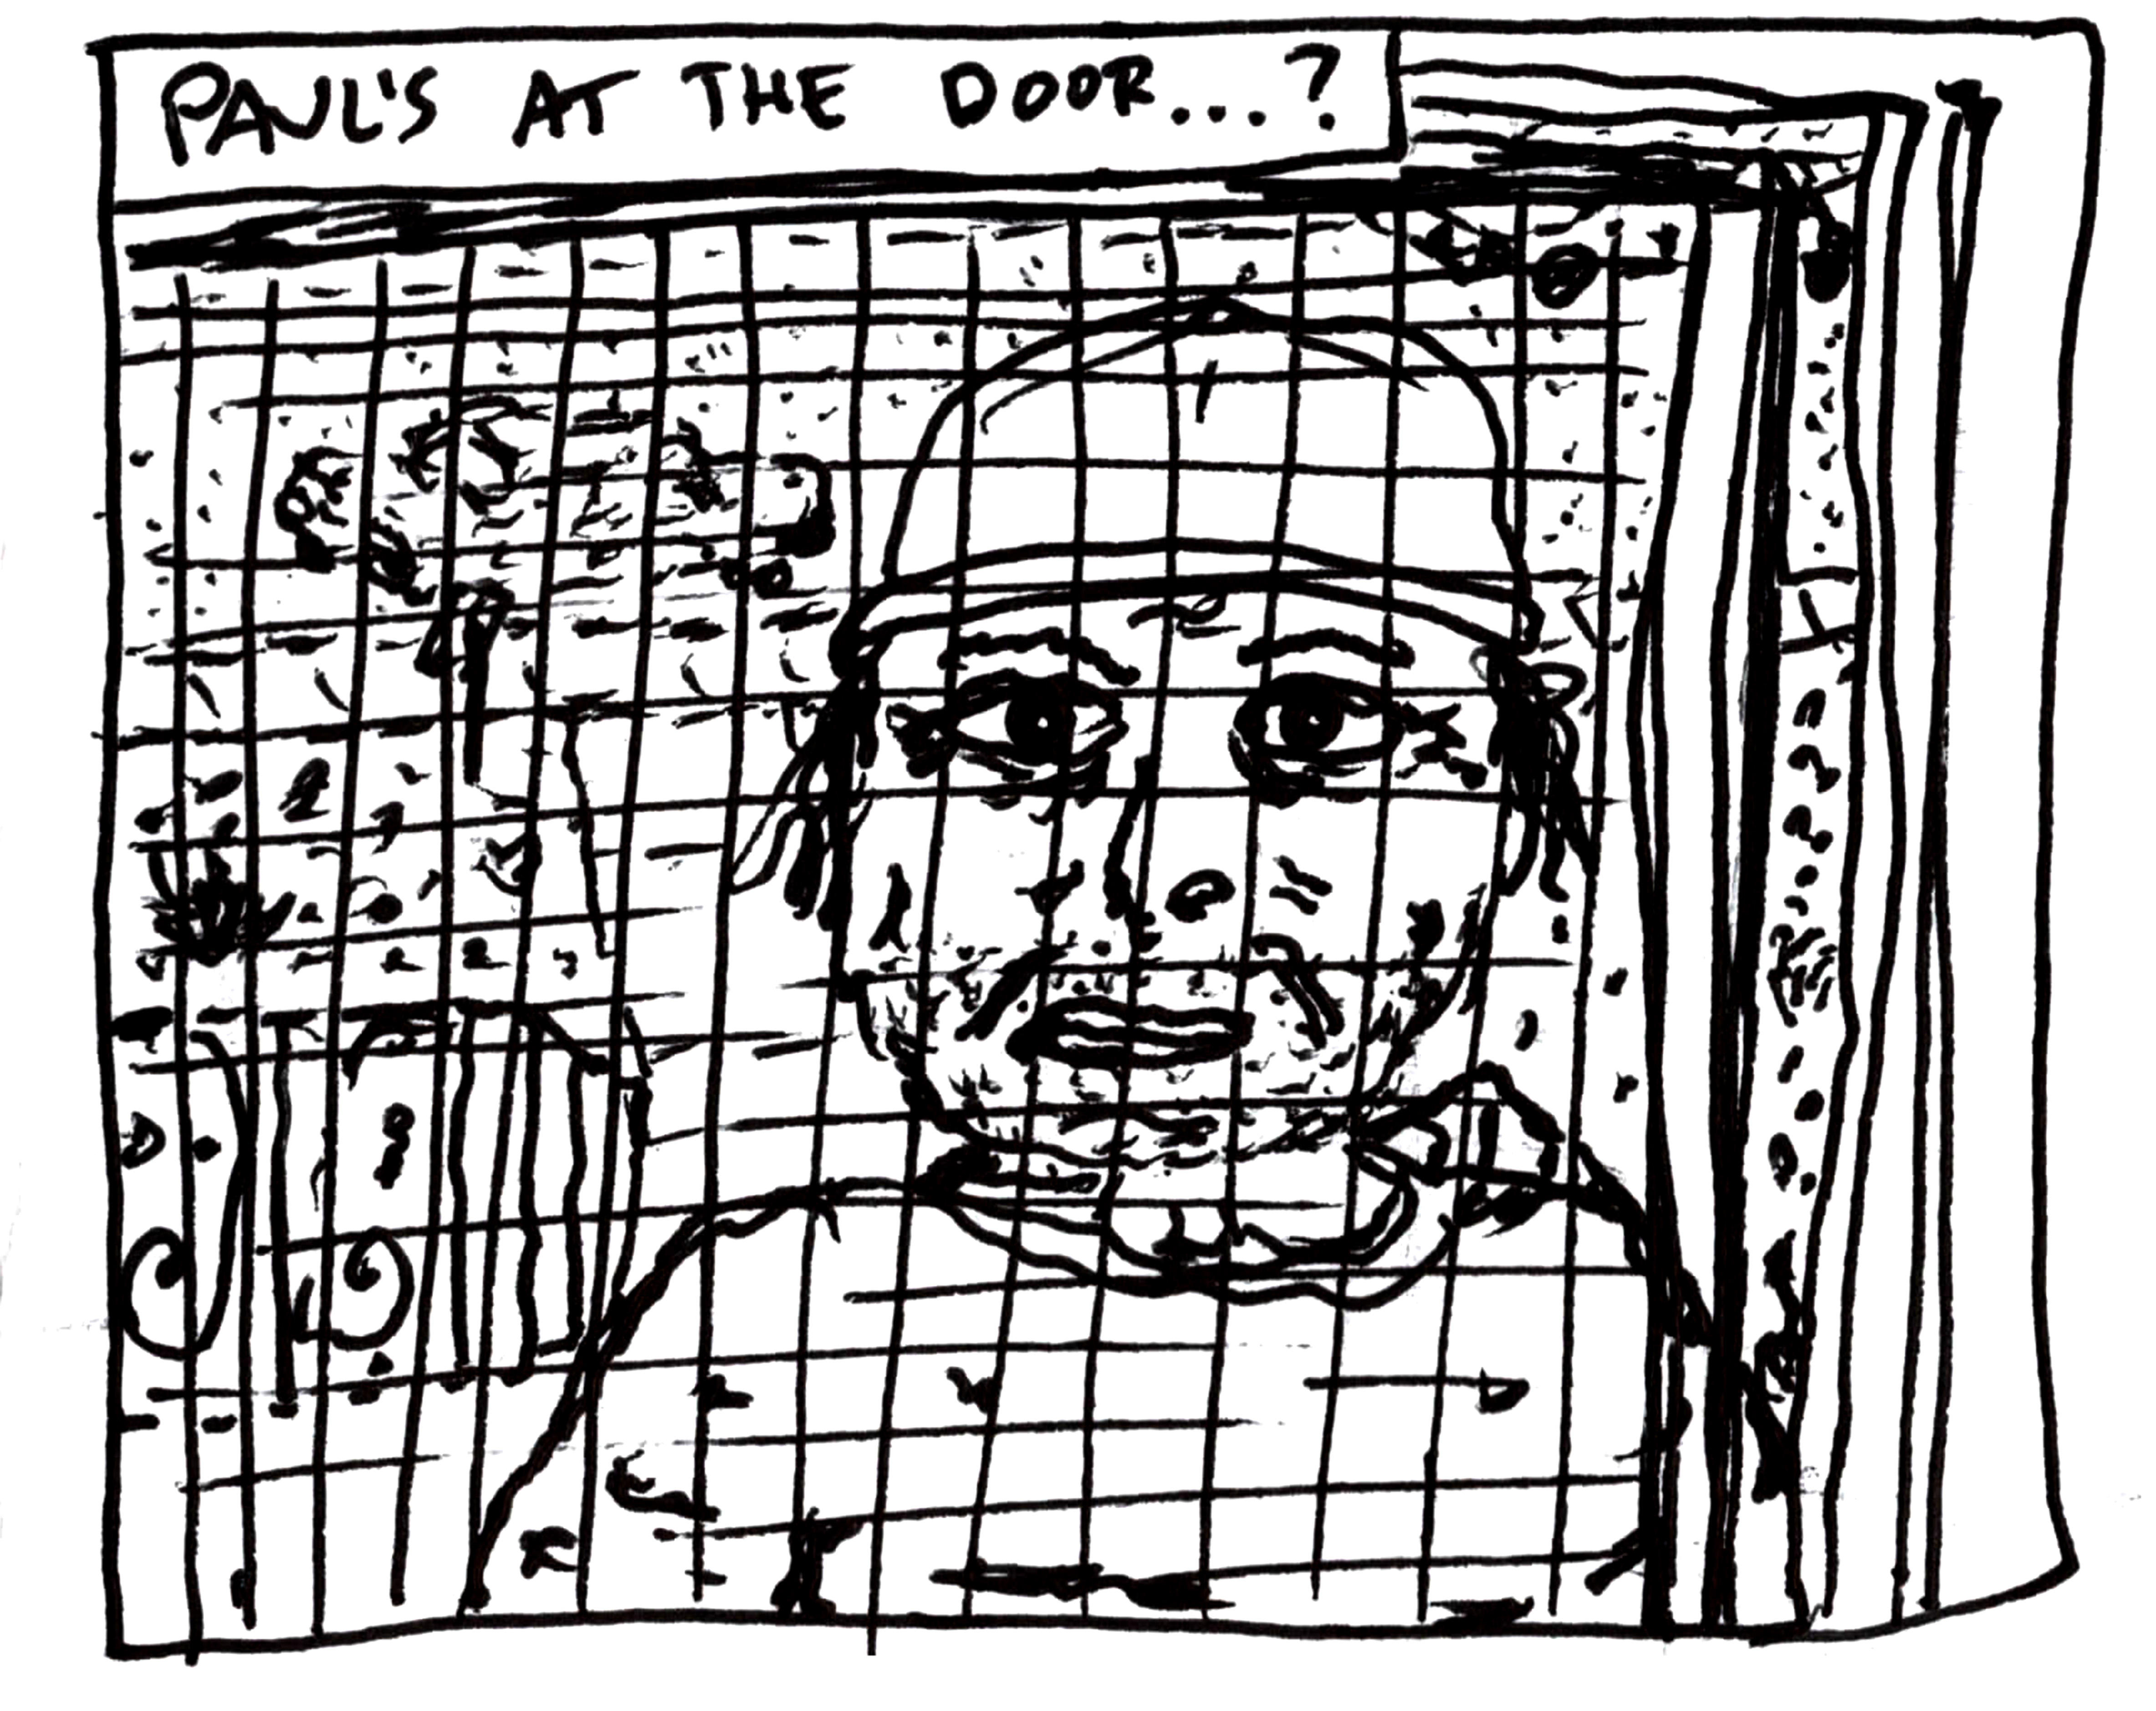 PAUL'S AT THE DOOR...?